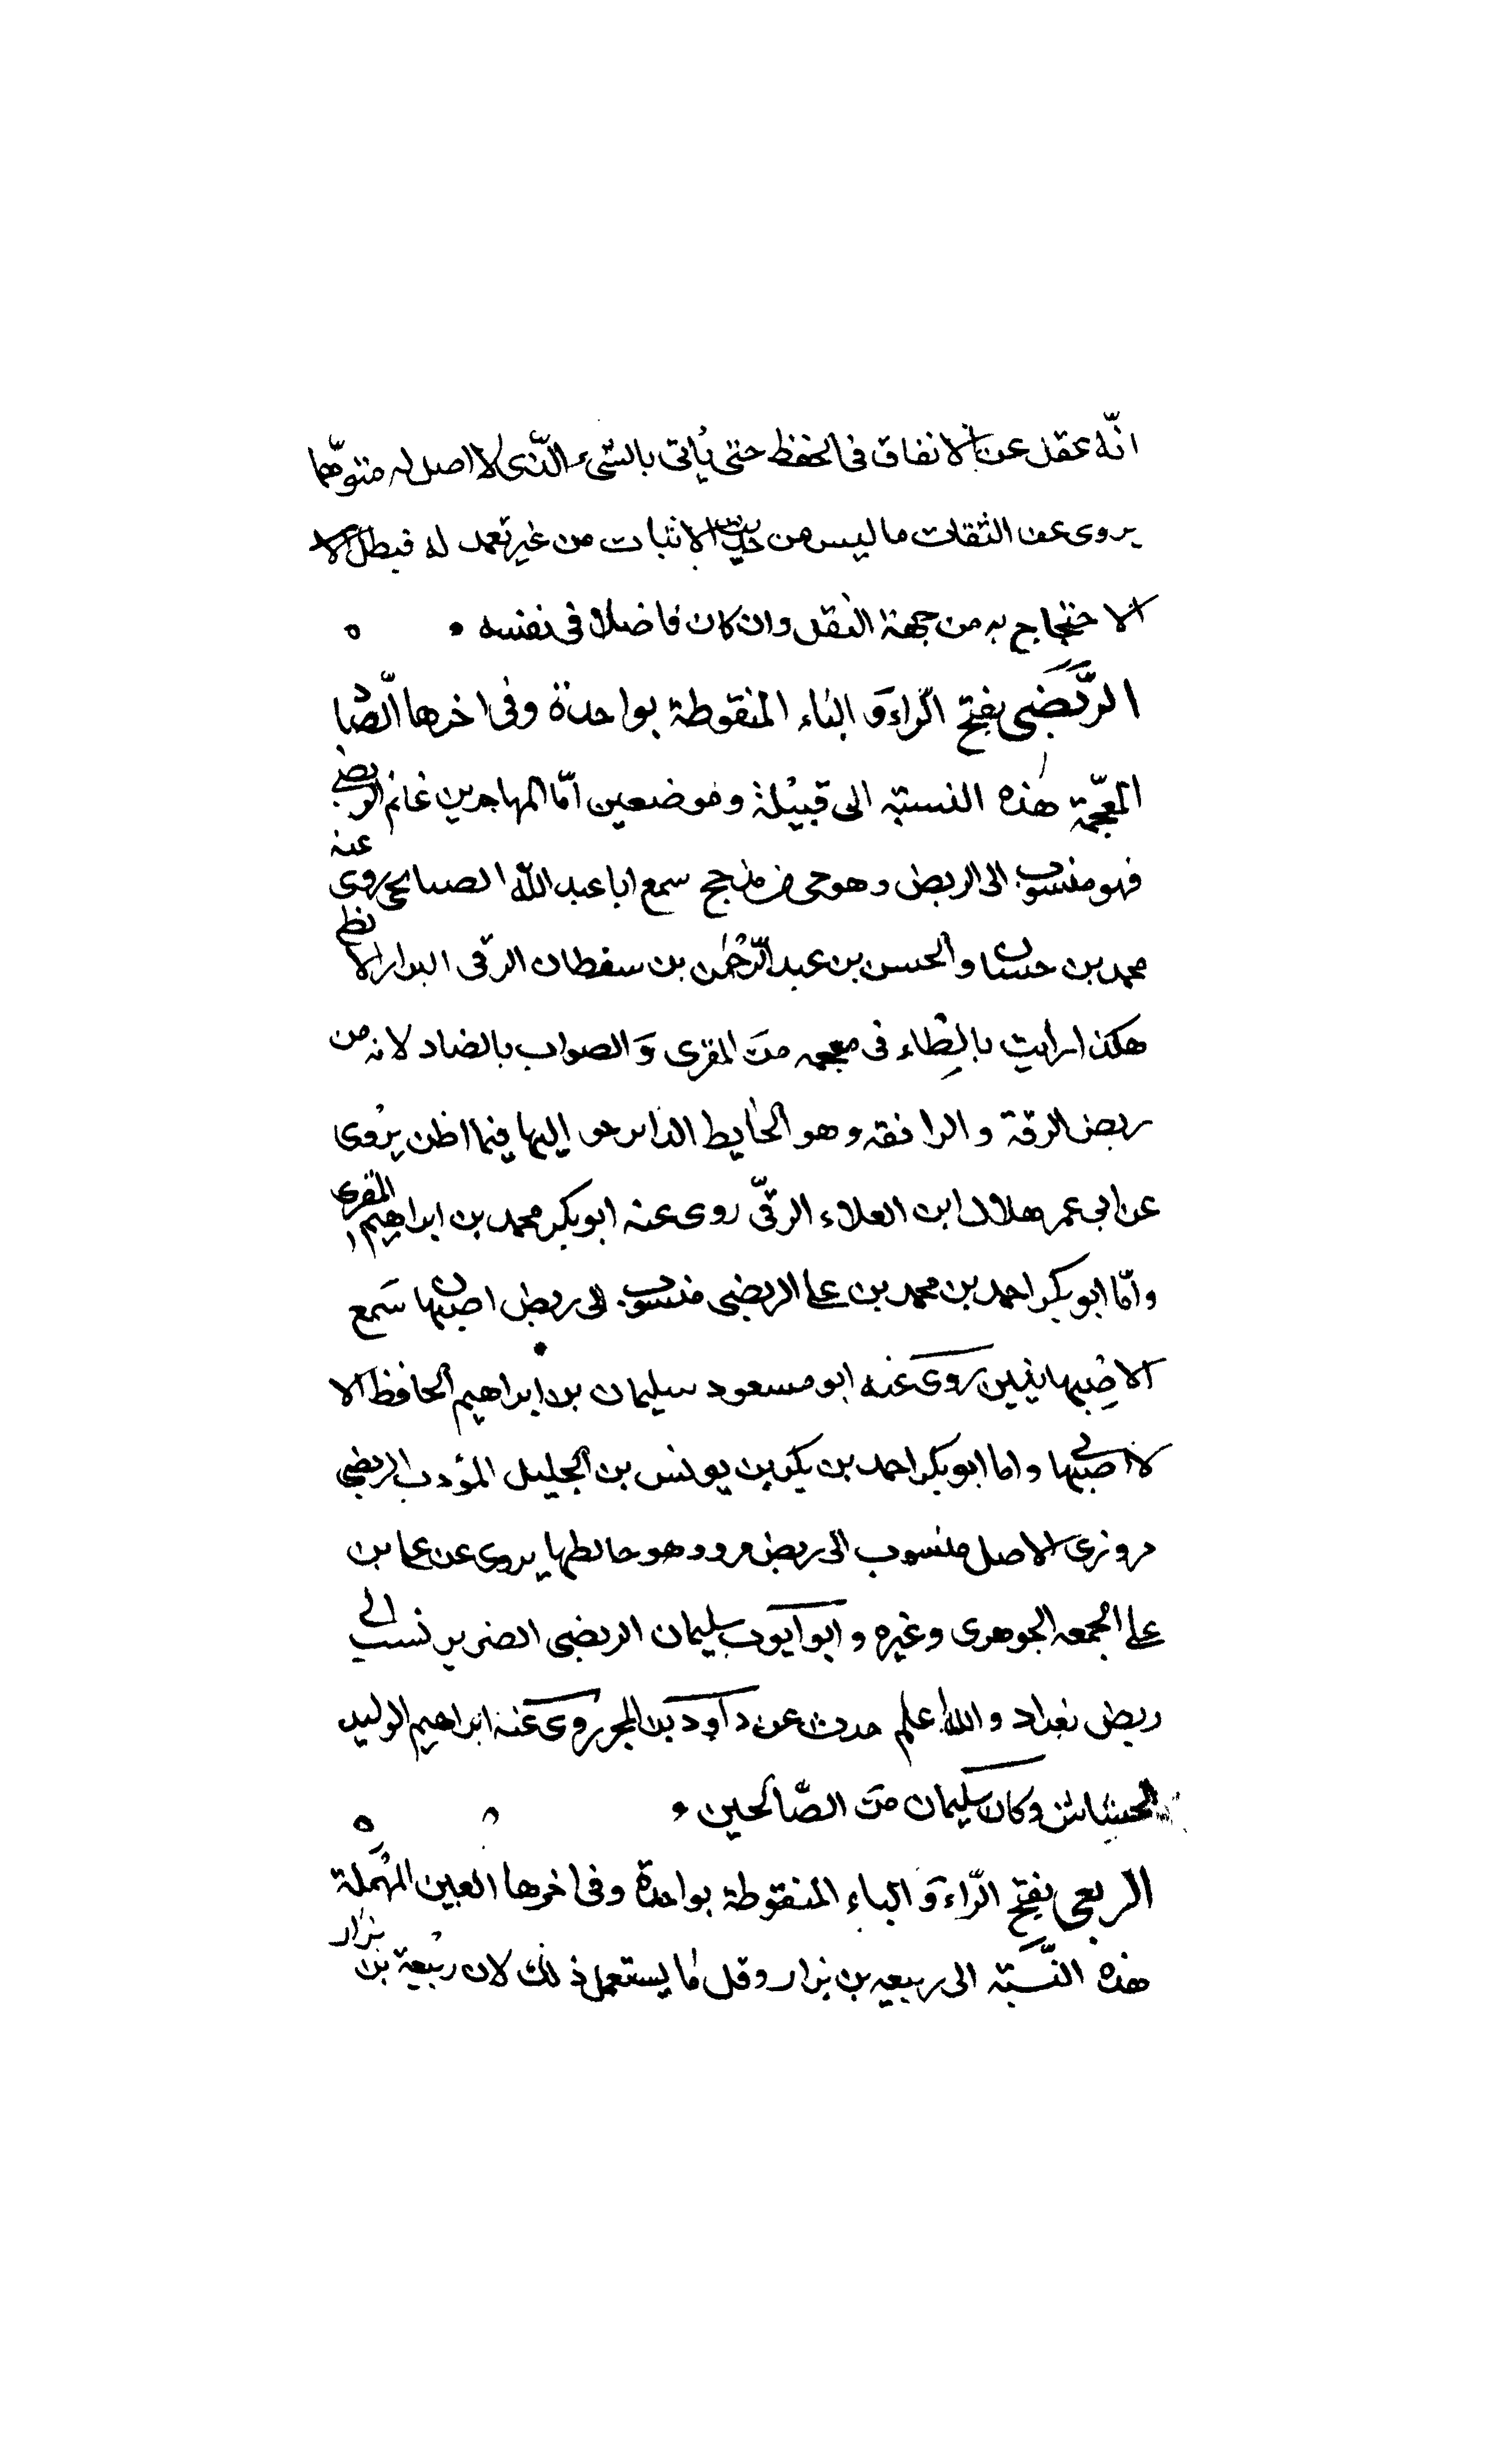 انّه عقل عن الاتفاق فى الحفظ حتى يأتى بالشىء الّذى لا اصل له متوهّما
يروى عن الثقات ما ليس من حديث الاثبات من غير تعمد له فبطل الا
الاحتجاج به من جهة النقل وان كان فاضلا فى نفسه
الرَّبَضى بفتح الرّاء وَ الباء المنقوطة بواحدة وفى اخرها الضّاد
المعجّمة هذه النسبة الى قبيلة وموضعين امّا المهاجر بن غانم الربضى
فهو منسوب الى الربض وهو حى من مذحج سمع ابا عبد اللّه الصنابحى روى عنه
محمد بن حسان والحسن بن عبد الرّحمن بن سفطان الرقى البزار
هكذا رأيت بالظاء فى معجمه منَ المقرى وَالصواب بالضاد لانه من
ربض الرقة والرافقه وهو الحايط الداير حو اليها فيما اظن يروى
عن ابى عمر هلال ابن العلاء الرقّى روى عنه ابو بكر محمد بن ابراهيم المقرى
وامّا ابو بكر احمد بن محمد بن على الربضى منسوب الى ربض اصبهان سَمع
الاصبهانيين روى عنه ابو مسعود سليمان بن ابراهيم الحافظ الا
لاصبهانى واما ابو بكر احمد بن بكر بن يونس بن الجليل المؤدب الربضى
مروزى الاصل منسوب الى ربض مرو وهو حائطها يروى عن على بن
على الجمعه الجوهرى وغيره وابو ايوب سليمان الربضى الضرير نسب الى
ربض بغداد والله اعلم حدث عن داود بن المجر روى عنه ابراهيم الوليد
الحشاش وكان سليمان منَ الصّالحين
الربعى بفتح الرّاء وَ الباء المنقوطة بواحدة وفى اخرها العين المهملة
هذه النّسبة الى ربيعه بن نزار وقل ما يستعمل ذلك لان ربيعة بن نزار